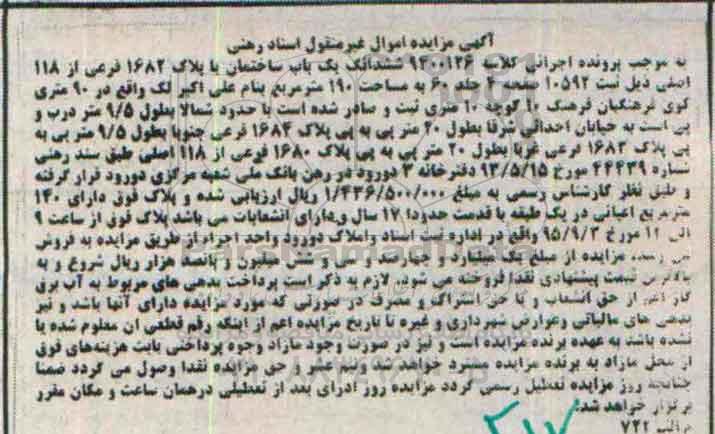 آگهی مزایده اموال غیرمنقول اسناد رهنی
به موجب پرونده اجرائی کلاسه ۹۳۰۰۱۲۶ ششدانگ یک باب ساختمان با پلاک ۱۶۸۲ فرعی از ۱۱۸
اصلی ذیل ثبت ۱۰۵۹۲ صفحه جلد ۶۰ به مساحت ۱۹۰ مترمربع بنام علی اکبر لک واقع در ۹۰ متری
کوی فرهنگیان فرهنگ ۱۰ کوچه ۱۰ متری ثبت و صادر شده است با حدود شمالا بطول ۹/۵ متر درب و
پی است به خیابان احداثی شرقا بطول ۲۰ متر پی به پی پلاک ۱۶۸۴ فرعی جنوبا بطول ۹/۵ متر پی به
پی پلاک ۱۶۸۳ فرعی غربا بطول ۲۰ متر پی به پی پلاک ۱۶۸۰ فرعی از ۱۱۸ اصلی طبق سند رهنی
شماره ۴۴۴۳۹ مورخ ۹۳/۵/۱۵ دفترخانه ۳ دورود در رهن بانک ملی شعبه مرکزی دورود قرار گرفته
و طبق نظر کارشناس رسمی به مبلغ ۱/۴۳۶/۵۰۰/۰۰۰ ریال ارزیابی شده و پلاک فوق دارای ۱۴۰
مترمربع اعیانی در یک طبقه با قدمت حدودا ۱۷ سال و دارای انشعابات می باشد پلاک فوق از ساعت ۹
الی ۱۲ مورخ ۹۵/۹/۳ واقع در اداره ثبت اسناد و املاک دورود واحد اجراء از طریق مزایده به فروش
می رسد مزایده از مبلغ یک میلیارد و چهارصد و سی و شش میلیون و پانصد هزار ریال شروع و به
بالاترین قیمت پیشنهادی نقدا فروخته می شود. لازم به ذکر است پرداخت بدهی های مربوط به آب برق
گاز اعم از حق انشعاب و یا حق اشتراک و مصرف در صورتی که مورد مزایده دارای آنها باشد و نیز
بدهی های مالیاتی وعوارض شهرداری و غیره تا تاریخ مزایده اعم از اینکه رقم قطعی آن معلوم شده یا
نشده باشد به عهده برنده مزایده است و نیز در صورت وجود مازاد وجوه پرداختی بابت هزینه‌های فوق
از محل مازاد به برنده مزایده مسترد خواهد شد ونیم عشر و حق مزایده نقدا وصول می گردد ضمنا
چنانچه روز مزایده تعطیل رسمی گردد مزایده روز اداری بعد از تعطیلی درهمان ساعت و مکان مقرر
برگزار خواهد شد.
م الف ۷۴۲